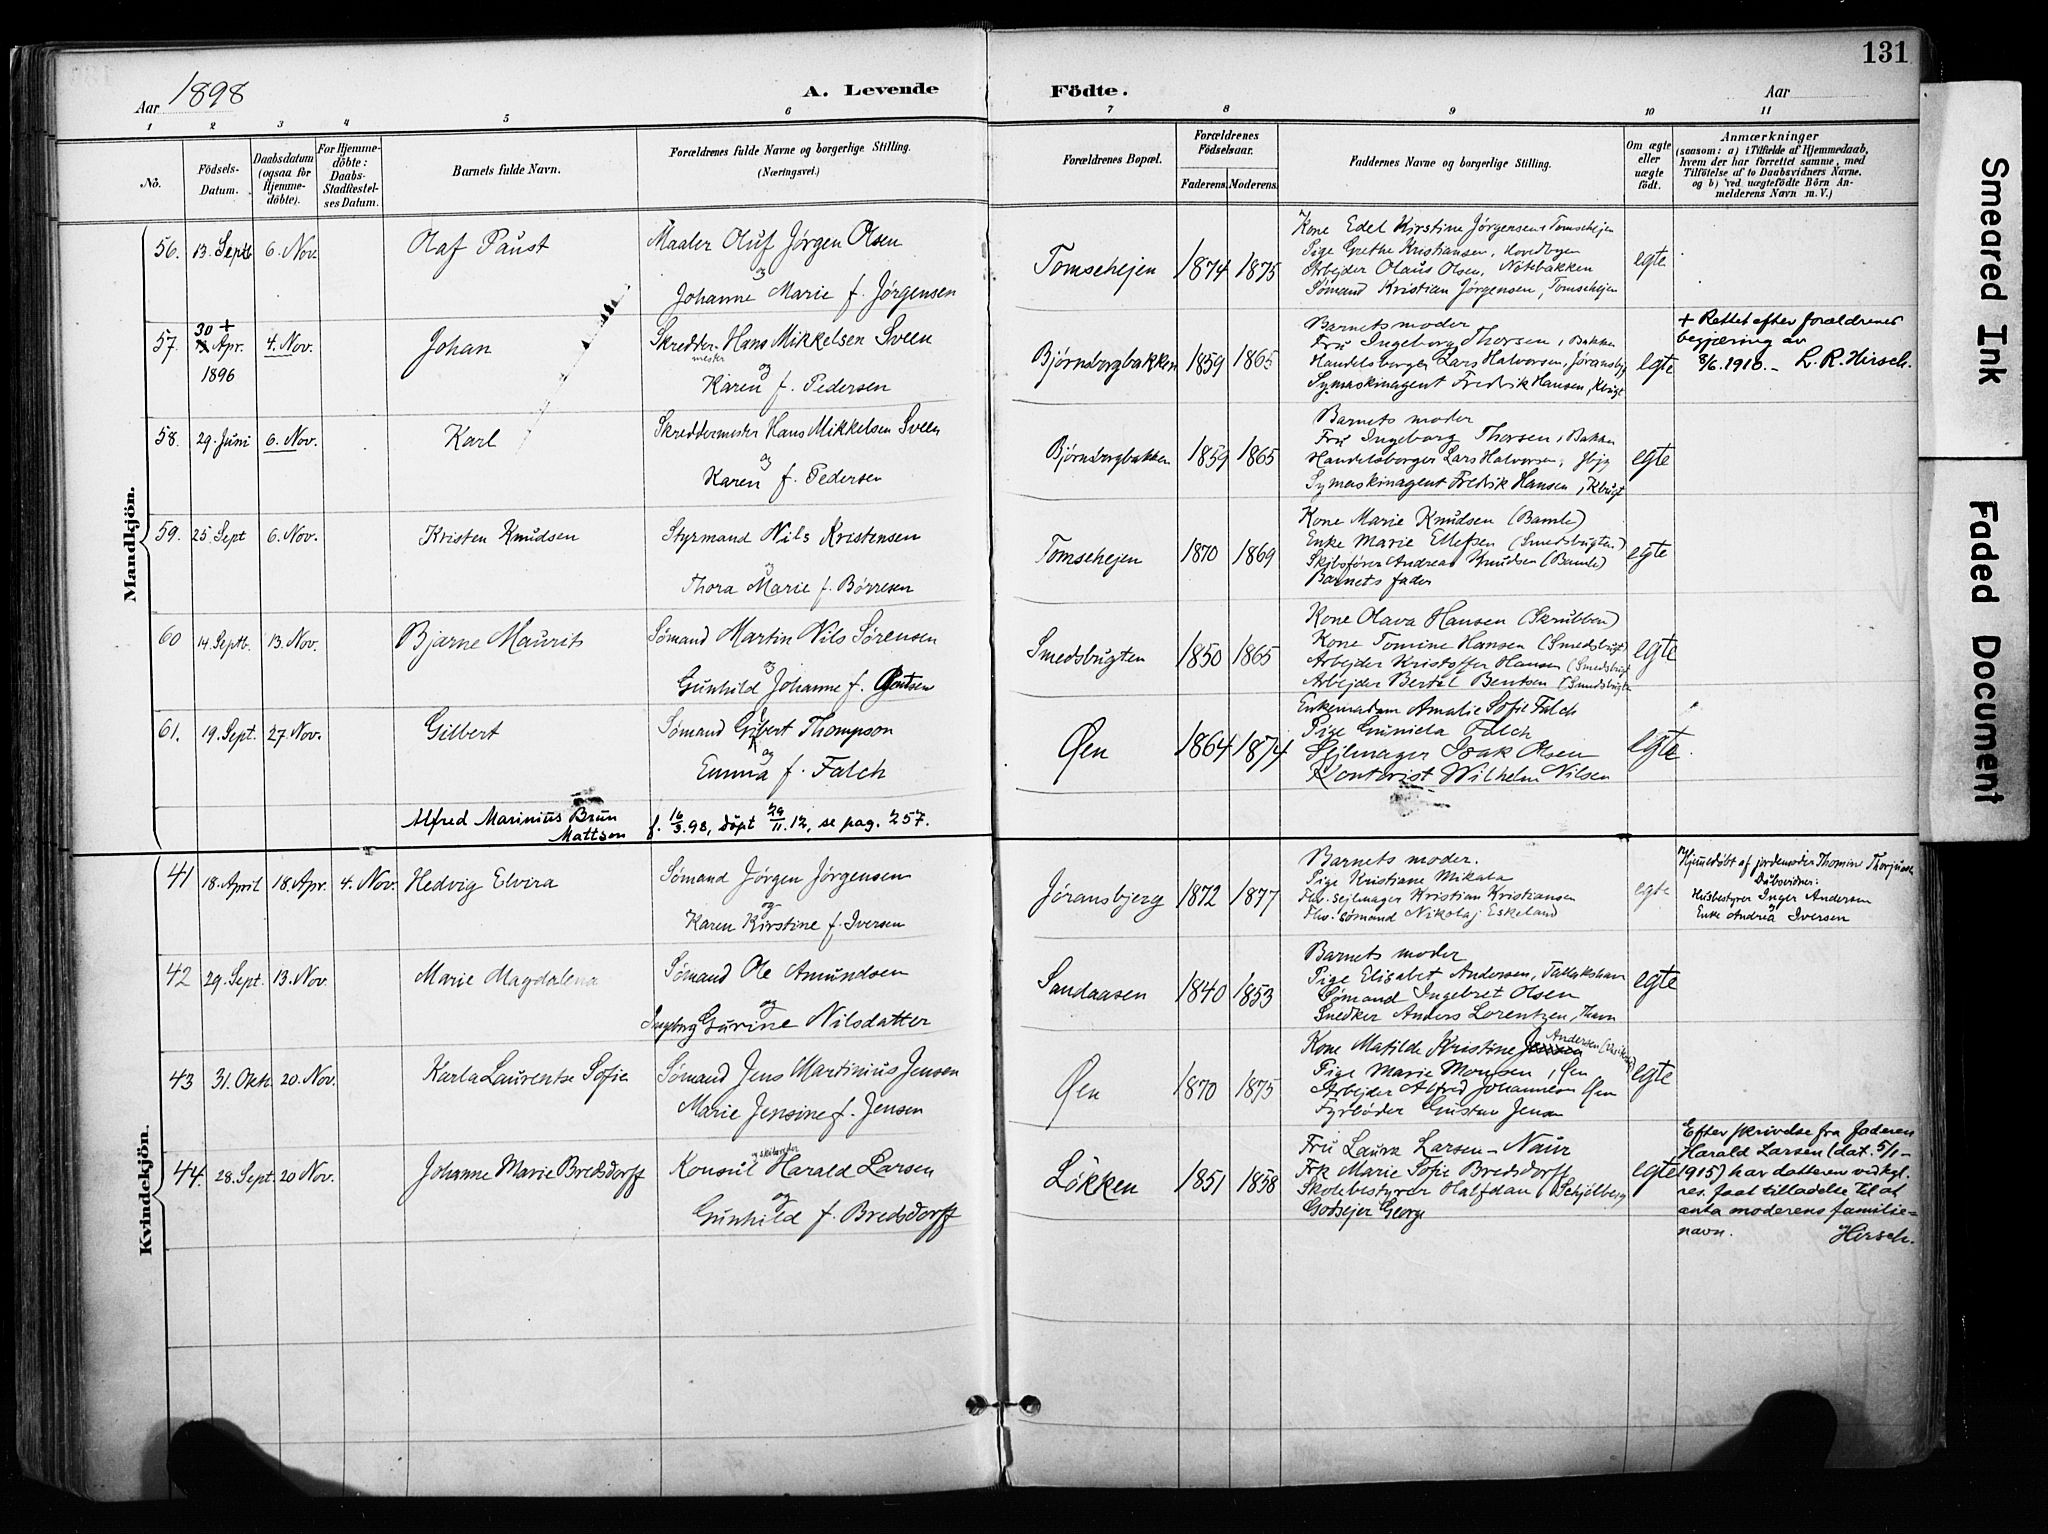 131
Aar 1898
A. Levende Födte.
Aar
1 2 3 4 5 6 7 8 9 10 11
No.
Födsels-Datum.
Daabsdatum (ogsaa for Hjemme-döbte).
For Hjemme-döbte: Daabs-Stadfæstel-ses Datum.
Barnets fulde Navn.
Forældrenes fulde Navne og borgerlige Stilling. (Næringsvei.)
Forældrenes Bopæl.
Forældrenes Födselsaar.
Faderens. Moderens.
Faddernes Navne og borgerlige Stilling.
Om ægte eller uægte födt.
Anmærkninger
(saasom: a) i Tilfælde af Hjemmedaab, hvem der har forrettet samme, med Tilföielse af to Daabsvidners Navne. og b) ved uægtefödte Börn An-melderens Navn m. V.)
Mandkjön.
56. 13. Septb 6. Nov. Olaf Paust
Maaler Oluf Jörgen Olsen
og
Johanne Marie f. Jørgensen
Tomsehejen 1874 1875
Kone Edel Kirstine Jørgensen, Tomsehejen
Pige Grethe Kristiansen, Hovedbyen
Arbejder Olaus Olsen, Nötebakken
Sømand Kristian Jørgensen, Tomsehejen
egte
57. 30 + Apr. 1896 4. Nov. Johan
Skreddermester Hans Mikkelsen Sveen
og
Karen f. Pedersen
Bjørnsborgbakken 1859 1865
Barnets moder
Fru Ingeborg Thorsen, Bakken
Handelsborger Lars Halvorsen, Jøransbj
Symaskinagent Fredrik Hansen, Kbugt
egte
+ Rettet efter forældrenes
begjæring av
8/6. 1910. - L. R. Hirsch.
58. 29. Juni 6. Nov. Karl
Skreddermester Hans Mikkelsen Sveen
og
Karen f. Pedersen
Bjørnsborgbakken 1859 1865
Barnets moder
Fru Ingeborg Thorsen, Bakken
Handelsborger Lars Halvorsen, Jbjg
Symaskinagent Fredrik Hansen, Kbugt
egte
59. 25. Sept 6. Nov. Kristen Knudsen
Styrmand Nils Kristensen
og
Thora Marie f. Børresen
Tomsehejen 1870 1869
Kone Marie Knudsen (Bamle)
Enke Marie Ellefsen (Smedsbugten)
Skibsfører Andreas Knudsen (Bamle)
Barnets fader
egte
60 14. Septb. 13. Nov. Bjarne Maurits
Sømand Martin Nils Sørensen
og
Gunhild Johanne f.
Smedsbugten 1850 1865
Kone Olava Hansen (Skrubben)
Kone Tomine Hansen (Smedsbugt)
Arbejder Kristoffer Hansen (Smedsbugt
Arbejder Bertel Bentsen (Smedsbugten
egte
61. 19. Sept. 27. Nov. Gilbert
Sømand Gilbert Thompson
og
Emma f. Falch
Øen 1864 1874
Enkemadam Amalie Sofie Falch
Pige Gunnilda Falch
Sejlmager Isak Olsen
Kontorist Wilhelm Nilsen
egte.
Alfred Marinius Brun
Mattson f. 16/3. 98, døpt 29/11. 12, se pag. 257.
Kvindekjön.
41 18. April 18. Apr. 4. Nov. Hedvig Elvira
Sømand Jørgen Jørgensen
og
Karen Kirstine f. Iversen
Jøransbjerg 1872 1877
Barnets moder.
Pige Kristiane Mikala
Fhv. sejlmager Kristian Kristiansen
Fhv. sømand Nikolaj Eskeland
egte
Hjemmedøbt af jordemoder Thomine
Dåbsvidner:
Husbestyrer Inger Andersen
Enke Andrea Iversen
42 29. Sept. 13. Nov. Marie Magdalena
Sømand Ole Amundsen
og
Ingeborg Gurine Nilsdatter
Sandaasen 1840 1853
Barnets moder
Pige Elisabet Andersen, Tallakshavn
Sømand Ingebret Olsen
Snedker Anders Lorentzen,
egte
43 31. Okt. 20. Nov. Karla Laurentse Sofie
Sømand Jens Martinius Jensen
Marie Jensine f. Jensen
Øen 1870 1875
Kone Matilde Kristine Andersen
Pige Marie Monsen, Øen
Arbejder Alfred Johannesen Øen
Fyrbøder Gustav Jensen
egte
44. 28. Sept. 20 Nov. Johanne Marie Bredsdorff
Konsul og skibsreder Harald Larsen
og
Gunhild f. Bredsdorff
Løkken 1851 1858
Fru Laura Larsen - Naur
Frk Marie Sofie Bredsdorff
Skolebestyrer Halfdan Schjølberg
Godsejer Georg
egte
Efter skrivelse fra faderen
Harald Larsen (dat. 5/1-
1915) har datteren ved kgl.
res. faat tilladelse til at
anta moderens familie=
navn. Hirsch.
Smeared Ink
Faded Document